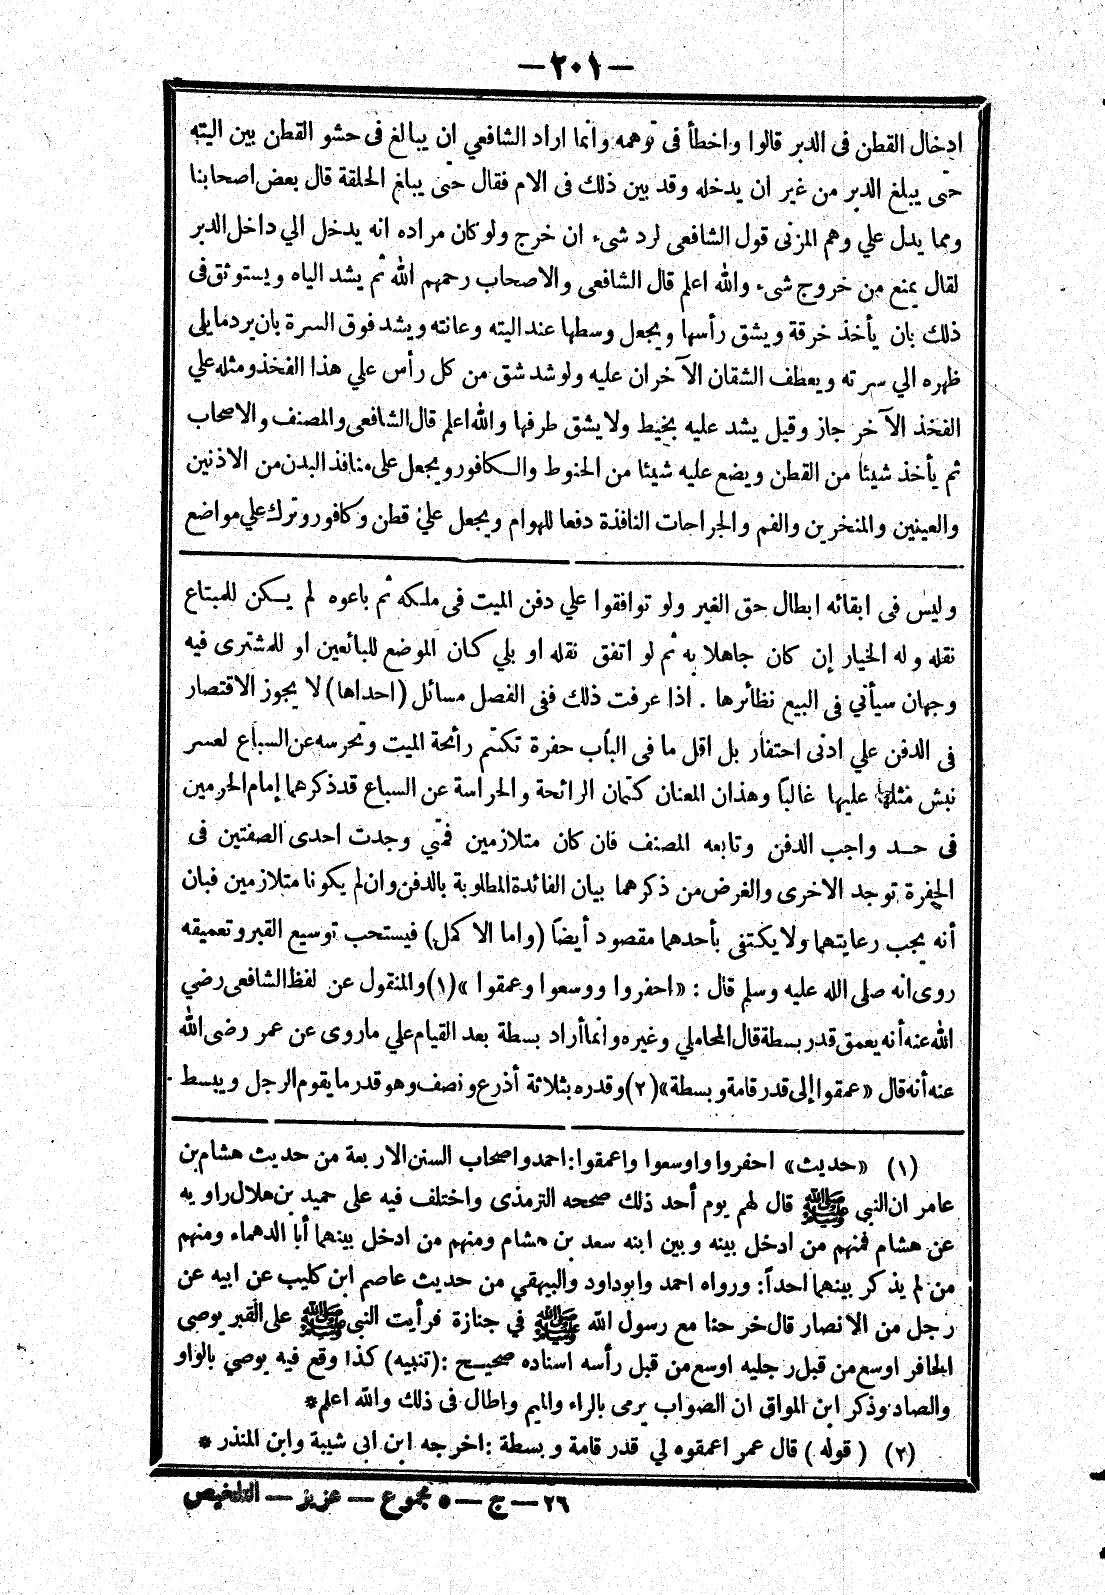 — ٢٠١ —
ادخال القطن فى الدبر قالوا واخطأ فى توهمه وانما اراد الشافعي ان يبالغ فى حشو القطن بين اليته
حتى يبلغ الدبر من غير ان يدخله وقد بين ذلك فى الام فقال حتى يبلغ الحلقة قال بعض اصحابنا
ومما يدل علي وهم المزنى قول الشافعى لرد شىء ان خرج ولو كان مراده انه يدخل الي داخل الدبر
لقال يمنع من خروج شىء والله اعلم قال الشافعى والاصحاب رحمهم الله ثم يشد الياه ويستوثق فى
ذلك بان يأخذ خرقة ويشق رأسها ويجعل وسطها عند اليته وعانته ويشد فوق السرة بان يرد ما يلى
ظهره الي سرته ويعطف الشقان الآخران عليه ولو شد شق من كل رأس علي هذا الفخذ ومثله علي
الفخذ الآخر جاز وقيل يشد عليه بخيط ولا يشق طرفها والله اعلم قال الشافعى والمصنف والاصحاب
ثم يأخذ شيئا من القطن ويضع عليه شيئا من الحنوط والكافور ويجعل على منافذ البدن من الاذنين
والعينين والمنخرين والفم والجراحات النافذة دفعا للهوام ويجعل علي قطن وكافور وترك علي مواضع
وليس فى ابقائه ابطال حق الغير ولو توافقوا علي دفن الميت فى ملكه ثم باعوه لم يكن للمبتاع
نقله وله الخيار إن كان جاهلا به ثم لو اتفق نقله او بلي كان الموضع للبائعين او للمشترى فيه
وجهان سيأتي فى البيع نظائرها . اذا عرفت ذلك ففى الفصل مسائل (احداها) لا يجوز الاقتصار
فى الدفن علي ادنى احتفار بل اقل ما فى الباب حفرة تكتم رائحة الميت وتحرسه عن السباع لعسر
نبش مثلها عليها غالبًا وهذان المعنان كتمان الرائحة والحراسة عن السباع قد ذكرهما إمام الحرمين
فى حد واجب الدفن وتابعه المصنف فان كان متلازمين فمتي وجدت احدى الصفتين فى
الحفرة توجد الاخرى والغرض من ذكرهما بيان الفائدة المطلوبة بالدفن وان لم يكونا متلازمين فبان
أنه يجب رعايتهما ولا يكتفى بأحدهما مقصود أيضًا (واما الاكمل) فيستحب توسيع القبر وتعميقه
روى انه صلى الله عليه وسلم قال : «احفروا ووسعوا وعمقوا »(١) والمنقول عن لفظ الشافعى رضي
الله عنه أنه يعمق قدر بسطة قال المحاملي وغيره وانما أراد بسطة بعد القيام علي ماروى عن عمر رضى الله
عنه أنه قال «عمقوا إلى قدر قامة وبسطة»(٢) وقدره بثلاثة أذرع ونصف وهو قدر ما يقوم الرجل ويبسط
(١) «حديث» احفروا واوسعوا واعمقوا: احمد واصحاب السنن الاربعة من حديث هشام بن
عامر ان النبي ﷺ قال لهم يوم أحد ذلك صححه الترمذى واختلف فيه على حميد بن هلال راويه
عن هشام فمنهم من ادخل بينه وبين ابنه سعد بن هشام ومنهم من ادخل بينهما أبا الدهماء ومنهم
من لم يذكر بينهما احداً: ورواه احمد وابوداود والبيهقي من حديث عاصم ابن كليب عن ابيه عن
رجل من الانصار قال خرجنا مع رسول الله ﷺ في جنازة فرأيت النبي ﷺ على القبر يوصى
الحافر اوسع من قبل رجليه اوسع من قبل رأسه اسناده صحيح :(تنبيه) كذا وقع فيه يوصي بالواو
والصاد وذكر ابن المواق ان الصواب يرمى بالراء والميم واطال فى ذلك والله اعلم*
(٢) ( قوله ) قال عمر اعمقوه لي قدر قامة وبسطة : اخرجه ابن ابي شيبة وابن المنذر *
٢٦ — ج — ٥ مجموع — عزيز — التلخيص